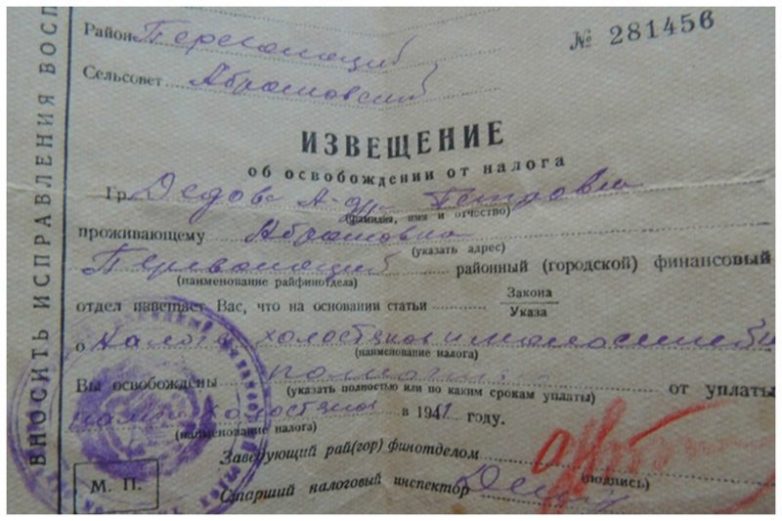 Район Перевозский
№ 281456
Сельсовет Абрамовский
ИЗВЕЩЕНИЕ
об освобождении от налога
Гр. Дедов А-др Петрович
(фамилия, имя и отчество)
проживающему Абрамовка
(указать адрес)
районный (городской) финансовый
(наименование райфинотдела)
отдел извещает Вас, что на основании статьи
Закона
Указа
о Налоге холостяков и малосемейн
(наименование налога)
Вы освобождены от уплаты
(указать полностью или по каким срокам уплаты)
холостяков в 1941 году.
(наименование налога)
Заведующий рай(гор) финотделом
(подпись)
М. П.
Старший налоговый инспектор
ВНОСИТЬ ИСПРАВЛЕНИЯ ВОСП